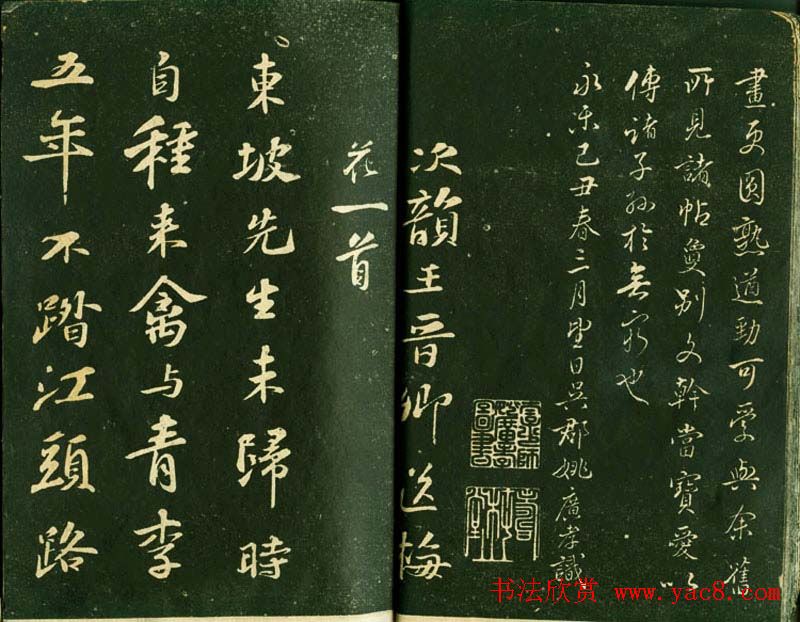 畫更圓熟遒勁可愛與余舊
所見諸帖敻別文幹當寶愛以
傳諸子孫於無窮也
永樂己丑春三月望日吳郡姚廣孝識
次韻王晉卿送梅
花一首
東坡先生未歸時
自種来禽与青李
五年不踏江頭路
书法欣赏 www.yac8.com